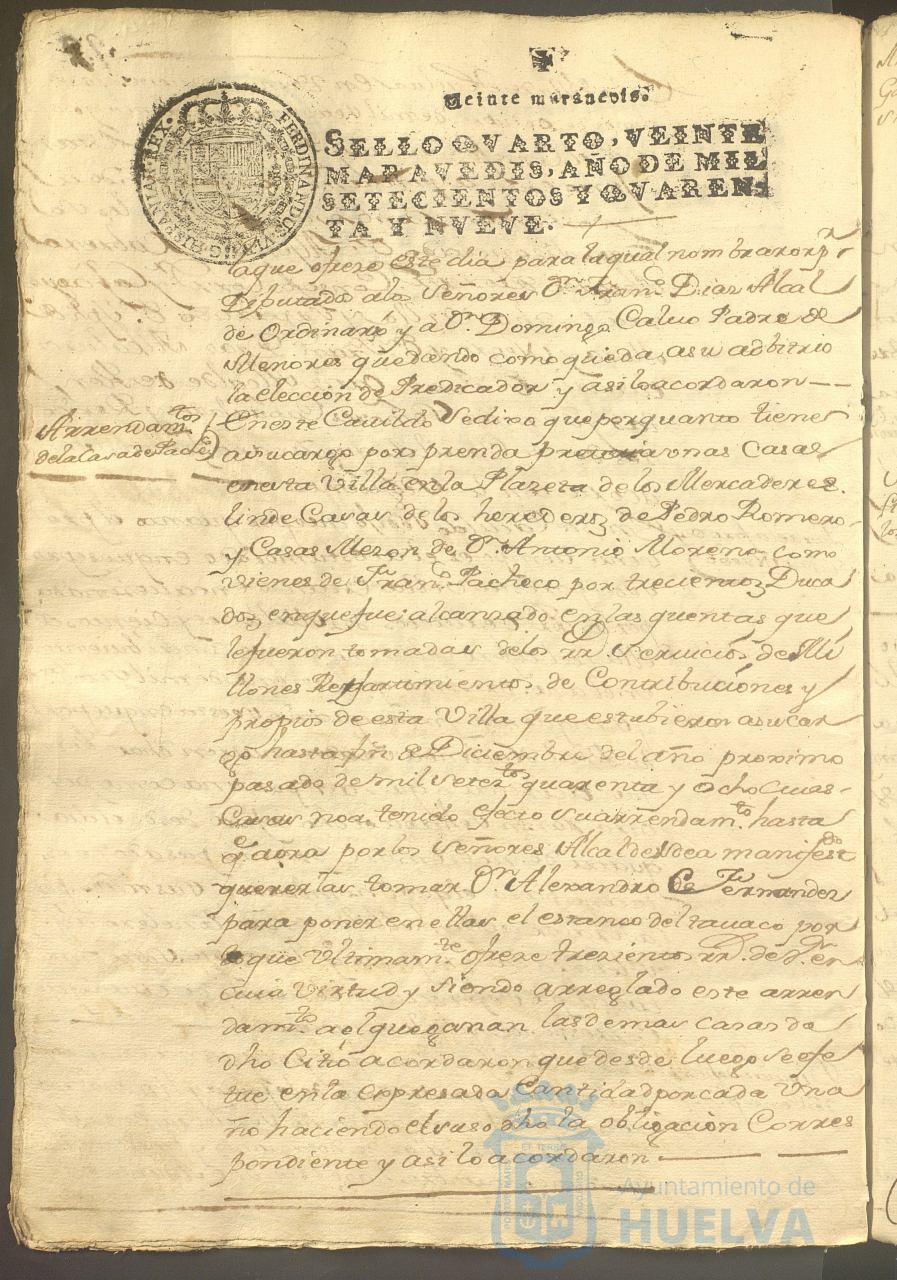 Veinte maravedis.
SELLO QVARTO, VEINTE
MARAVEDIS, AÑO DE MIL
SETECIENTOS Y QVAREN-
TA Y NUEVE.
FERDINANDUS VI D G HISPANIAR REX
laque ofrese este dia para la qual nombraron pr
Diputado a los Señores Dn. Frano. Dias Alcal
de Ordinario y a Dn. Domingo Calvo Padre de
Menores quedando como queda a su adbitrio
la eleccion de Predicador y asi lo acordaron
Arrendamto.
de la Casa de Pacheco
En este Cavildo Se dixo que por quanto tiene
a su cargo por prenda pretoria unas Casas
en esta Villa en la Plazeta de los Mercaderes
linde Casas de los herederos de Pedro Romero
y Casas Meson de Dn. Antonio Moreno como
vienes de Frano. Pacheco por trecientos Duca
dos en que fue alcansado en las quentas que
le fueron tomadas de los rr. Servicios de Mi
llones Repartimientos de Contribuciones y
propios de esta Villa que estubieron a su car
go hasta fin de Diciembre del año proximo
pasado de mil setetos. quarenta y ocho cuias
Casas no a tenido efecto su arrendamto. hasta
qe. aora por los Señores Alcaldes sea manifestdo
quererlas tomar Dn. Alexandro Fernandes
para poner en ellas el estanco del tavaco por
lo que Ultimamte. ofrese trezientos rr. de Vn. en
cuia virtud y siendo arreglado este arren
damto. a el que ganan las demas casas de
dho Citio acordaron que desde luego se efe
tue en la expresada Cantidad por cada Un a
ño haciendo el suso dho la obligacion Corres
pondiente y asi lo acordaron
Ayuntamiento de
HUELVA